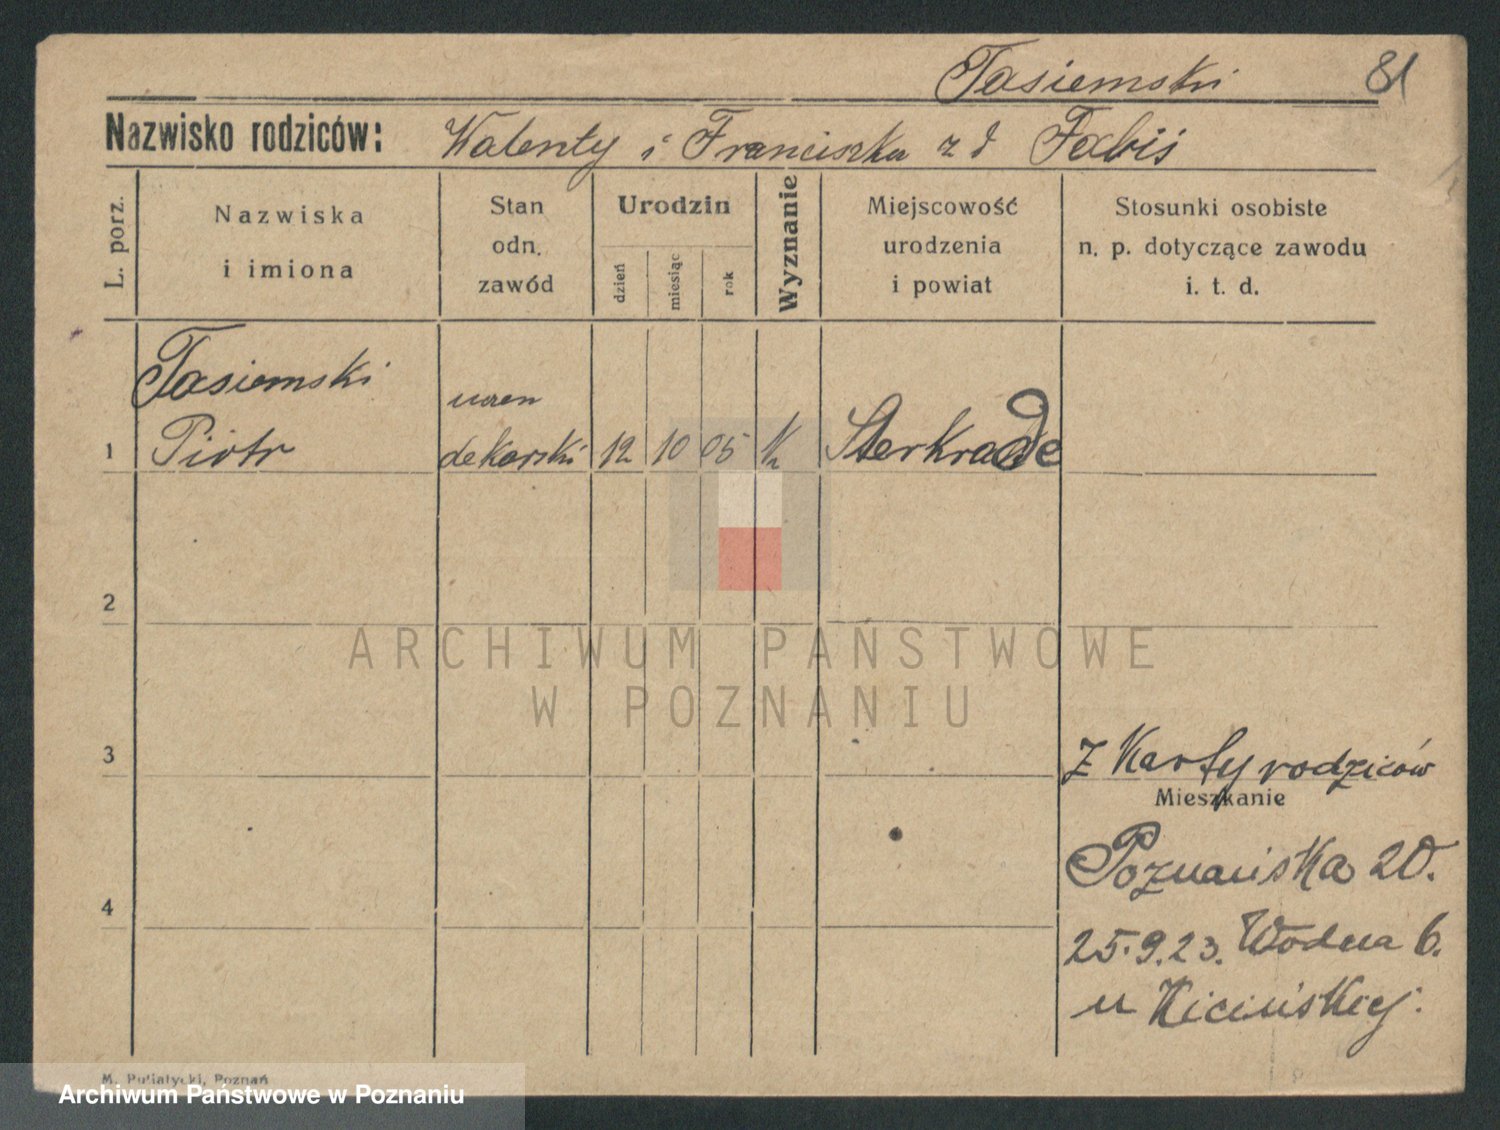 Tasiemski
81
Nazwisko rodziców: Walenty i Franciszka z d Fabiś
L. porz.
Nazwiska
i imiona
Stan
odn.
zawód
Urodzin
dzień
miesiąc
rok
Wyznanie
Miejscowość
urodzenia
i powiat
Stosunki osobiste
n. p. dotyczące zawodu
i. t. d.
Tasiemski
uczen
1 Piotr dekarski 12 10 05 k Sterkrade
2
3
4
z Karty rodziców
Mieszkanie
Poznańska 20.
25.9.23. Wodna 6.
u Kicińskiej.
ARCHIWUM PAŃSTWOWE
W POZNANIU
M. Putiatycki, Poznań
Archiwum Państwowe w Poznaniu